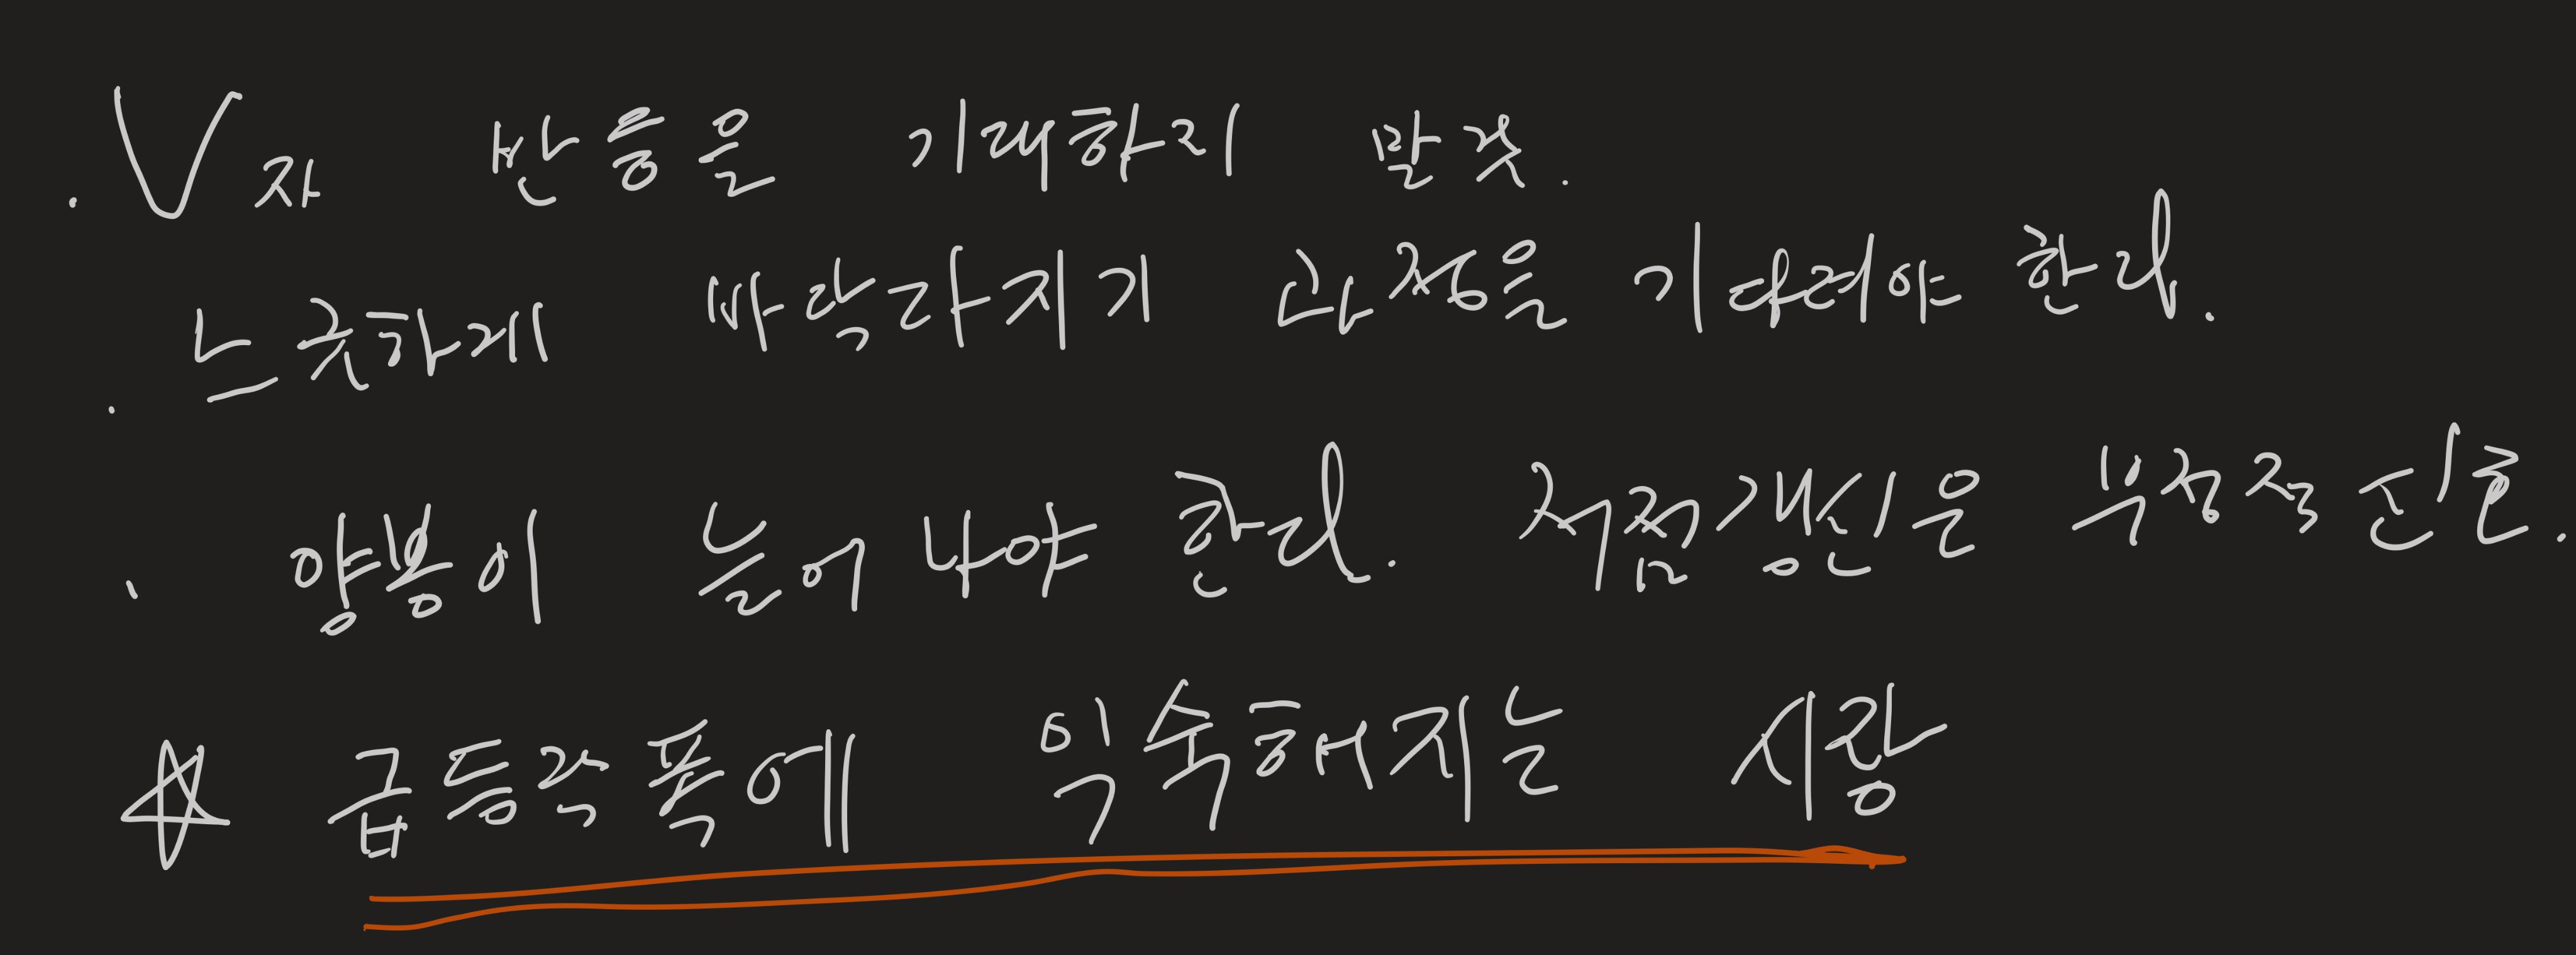 . V자 반응을 기대하지 말것.
. 느긋하게 바닥다지기 과정을 기다려야 한다.
. 양봉이 늘어나야 한다. 저점갱신은 부정적 신호.
☆ 급등락폭에 익숙해지는 시장